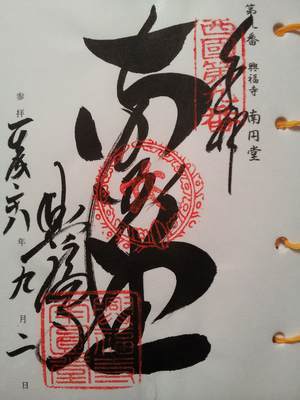 第九番 興福寺 南円堂
西國第九番
奉拝
南円堂
興福寺
参拝 平成二六年九月二日